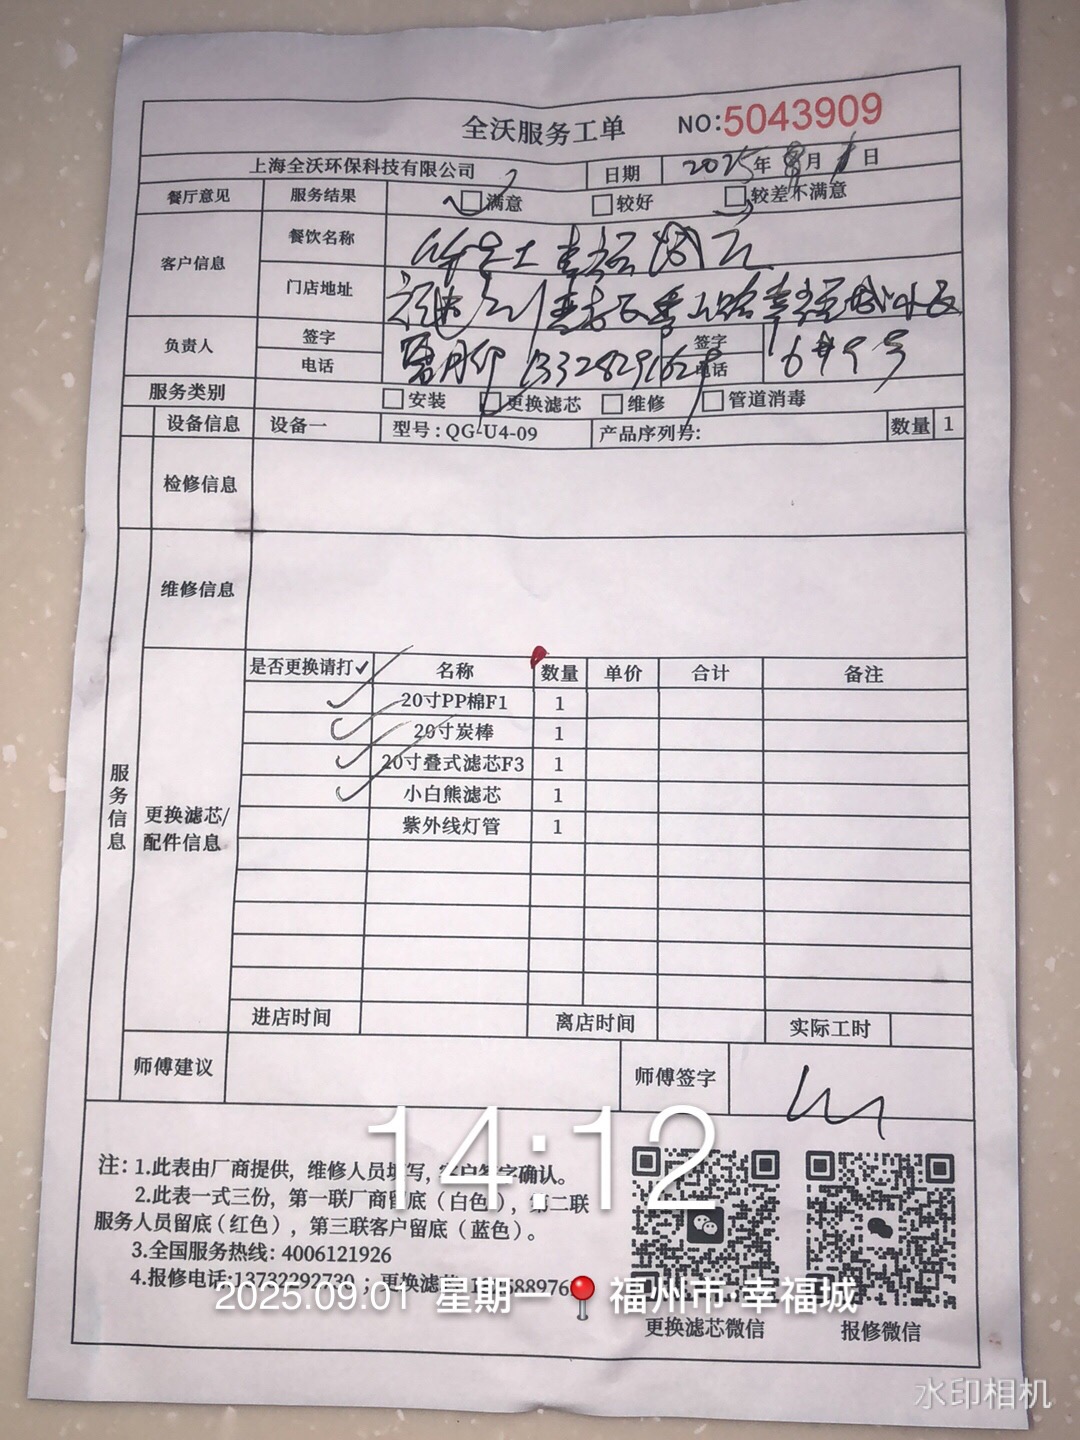 全沃服务工单 NO:5043909
上海全沃环保科技有限公司 日期 2025年 月1日
餐厅意见 服务结果 满意 较好 较差不满意
客户信息 餐饮名称 华莱士幸福城店
门店地址 福州 幸福城
负责人 签字 签字
电话 电话 6#9号
服务类别 安装 更换滤芯 维修 管道消毒
设备信息 设备一 型号:QG-U4-09 产品序列号: 数量 1
检修信息
维修信息
服务信息
更换滤芯/配件信息
是否更换请打✓ 名称 数量 单价 合计 备注
✓ 20寸PP棉F1 1
✓ 20寸炭棒 1
✓ 20寸叠式滤芯F3 1
✓ 小白熊滤芯 1
紫外线灯管 1
进店时间 离店时间 实际工时
师傅建议 师傅签字
注:1.此表由厂商提供，维修人员填写，客户签字确认。
2.此表一式三份，第一联厂商留底（白色），第二联
服务人员留底（红色），第三联客户留底（蓝色）。
3.全国服务热线: 4006121926
4.报修电话:13732292730；更换滤
更换滤芯微信 报修微信
14:12
2025.09.01 星期一 福州市·幸福城
水印相机